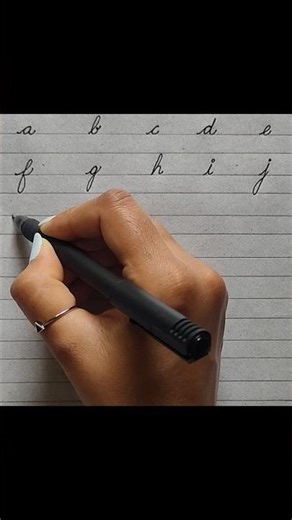 a b c d e
f g h i j